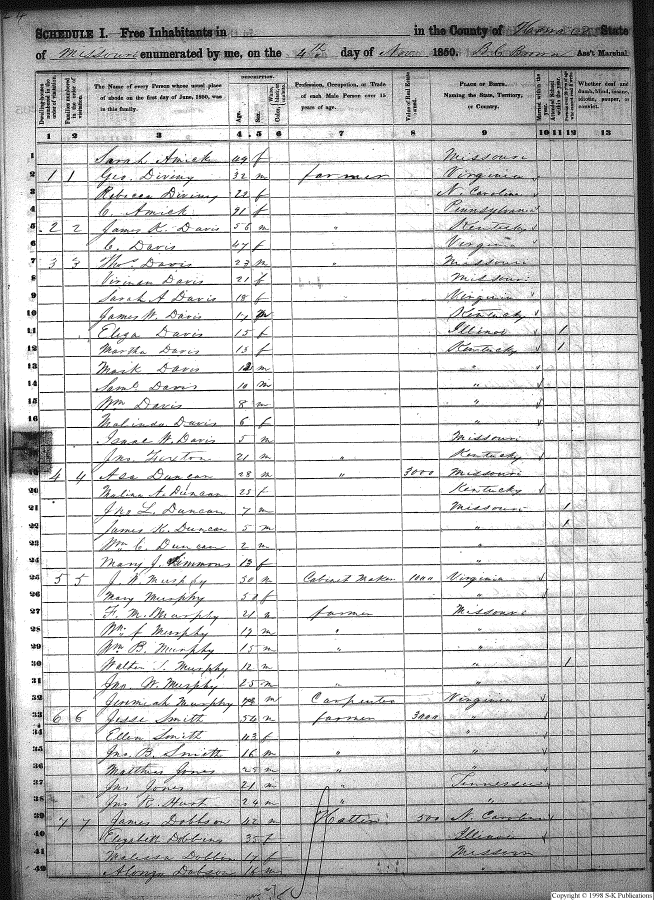 24
SCHEDULE I. Free Inhabitants in in the County of State
of Missouri enumerated by me, on the 4th day of Nov 1850. Ass't Marshal
Dwelling-houses numbered in the order of visitation.
Families numbered in the order of visitation.
The Name of every Person whose usual place of abode on the first day of June, 1850, was in this family.
DESCRIPTION.
Age.
Sex.
Color, White, black, or mulatto.
Profession, Occupation, or Trade of each Male Person over 15 years of age.
Value of Real Estate owned.
PLACE OF BIRTH. Naming the State, Territory, or Country.
Married within the year.
Attended School within the year.
Whether deaf and dumb, blind, insane, idiotic, pauper, or convict.
1 2 3 4 5 6 7 8 9 10 11 12 13
1 Sarah Amick 49 f Missouri
2 1 1 Geo. Diviny 32 m farmer Virginia
3 Rebecca Diviny f N. Carolina
4 C. Amick 91 f Pennsylvania
5 2 2 James K. Davis 56 m " Kentucky
6 C. Davis 47 f Virginia
7 3 3 Davis 23 m " Missouri
8 Davis 21 f Missouri
9 Sarah A Davis 18 f Virginia
10 James W. Davis 17 m Kentucky
11 Eliza Davis 15 f Illinois 1
12 Martha Davis 13 f Kentucky 1
13 Mark Davis 12 m "
14 Saml Davis 10 m "
15 Wm Davis 8 m "
16 Malinda Davis 6 f "
Isaac W. Davis 5 m Missouri
Jno 21 m " Kentucky
19 4 4 Asa Duncan 28 m " 3000 Missouri
20 Malina A. Duncan 25 f Kentucky
21 L. Duncan 7 m Missouri 1
22 James K. Duncan 5 m " 1
23 Wm C. Duncan 2 m "
24 Mary J. Simmons 13 f "
25 5 5 J. W. Murphy 50 m Cabinet Maker 1000 Virginia
26 Mary Murphy 50 f "
27 F. M. Murphy 21 m farmer Missouri
28 Wm Murphy 17 m " "
29 Wm B. Murphy 15 m " "
30 Walter Murphy 12 m " 1
31 Jno. W. Murphy 25 m "
32 Jeremiah Murphy m Carpenter Virginia
33 6 6 Jesse Smith 54 m farmer 3000 "
34 Ellen Smith 43 f "
35 Jno. B. Smith 16 m " "
36 Matthew Jones 25 m " "
37 Jno Jones 21 m " Tennessee
38 Jno R. Hart 24 m " "
39 7 7 James Dobson 42 m Hatter 500 N. Carolina
40 Elizabeth 35 f Illinois
41 Malissa 17 f Missouri
42 Alonzo Dobson 16 m "
Copyright © 1998 S-K Publications